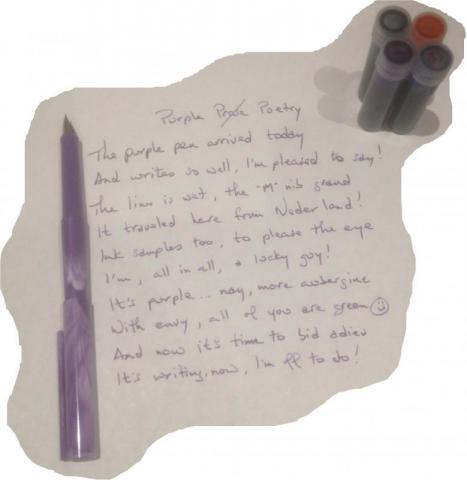 Purple Prose Poetry
The purple pen arrived today
And writes so well, I'm pleased to say!
The line is wet, the "M" nib grand
It traveled here from Nederland!
Ink samples too, to please the eye
I'm, all in all, a lucky guy!
It's purple... nay, more aubergine
With envy, all of you are green ☺
And now it's time to bid adieu
It's writing, now, I'm off to do!